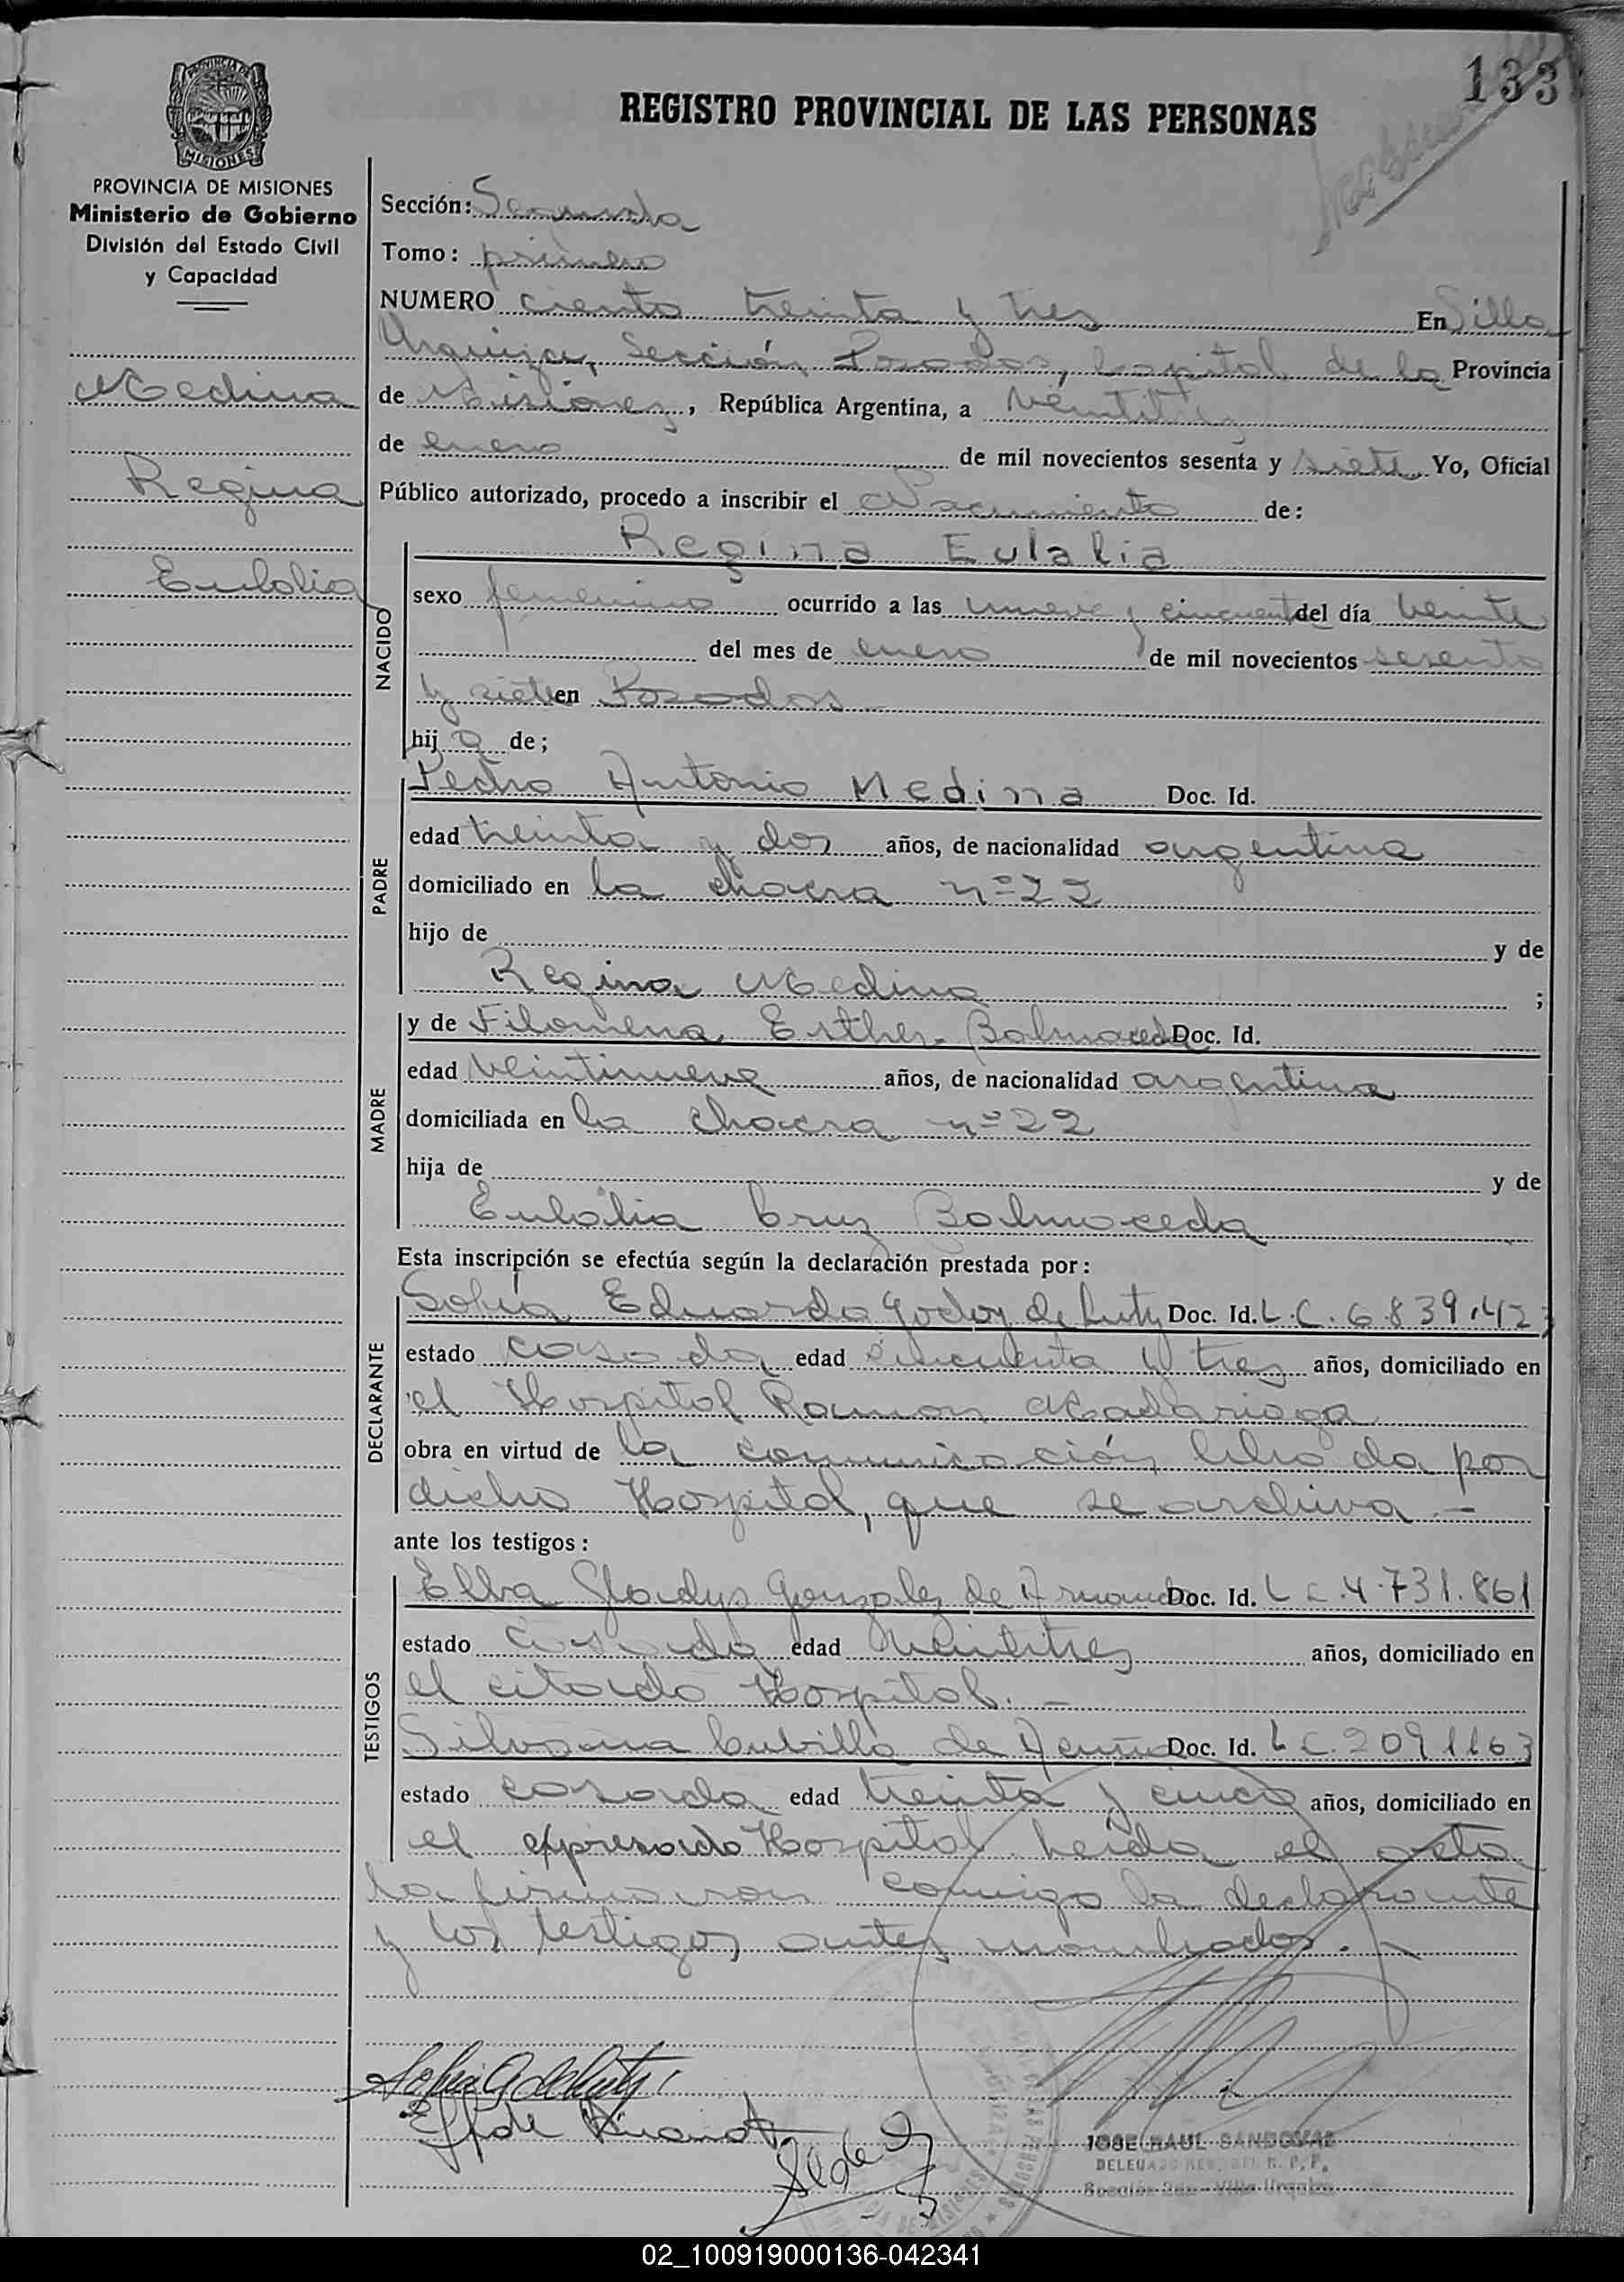 133
REGISTRO PROVINCIAL DE LAS PERSONAS
PROVINCIA DE MISIONES
MISIONES
PROVINCIA DE MISIONES
Ministerio de Gobierno
División del Estado Civil
y Capacidad
Medina
Regina
Eulalia
Sección: Segunda
Tomo: primero
NUMERO ciento treinta y tres En Villa
Urquiza, Sección Posadas, Capital de la Provincia
de Misiones, República Argentina, a veintitres
de enero de mil novecientos sesenta y siete Yo, Oficial
Público autorizado, procedo a inscribir el Nacimiento de:
NACIDO
Regina Eulalia
sexo femenino ocurrido a las nueve y cincuenta del día veinte
del mes de enero de mil novecientos sesenta
y siete en Posadas
hija de;
PADRE
Pedro Antonio Medina Doc. Id.
edad treinta y dos años, de nacionalidad argentina
domiciliado en la chacra nº 22
hijo de y de
Regina Medina ;
MADRE
y de Filomena Esther Balmaceda Doc. Id.
edad veintinueve años, de nacionalidad argentina
domiciliada en la chacra nº 22
hija de y de
Eulalia Cruz Balmaceda
Esta inscripción se efectúa según la declaración prestada por:
DECLARANTE
Sofia Eduarda Godoy de Luty Doc. Id. L.C. 6.839.423
estado casada edad cincuenta y tres años, domiciliado en
el Hospital Ramon Madariaga
obra en virtud de la comunicación librada por
dicho Hospital, que se archiva -
ante los testigos:
TESTIGOS
Elba Gladys Gonzalez de Doc. Id. L C. 4.731.861
estado casada edad veintitres años, domiciliado en
el citado Hospital. -
Silvana Cubilla de Acuña Doc. Id. L C. 2091163
estado casada edad treinta y cinco años, domiciliado en
el expresado Hospital. Leida el acta
la firmaron conmigo la declarante
y los testigos antes nombrados. -
JOSE RAUL SANDOVAL
DELEGADO R. P. P.
Sección 2da - Villa Urquiza
02_100919000136-042341